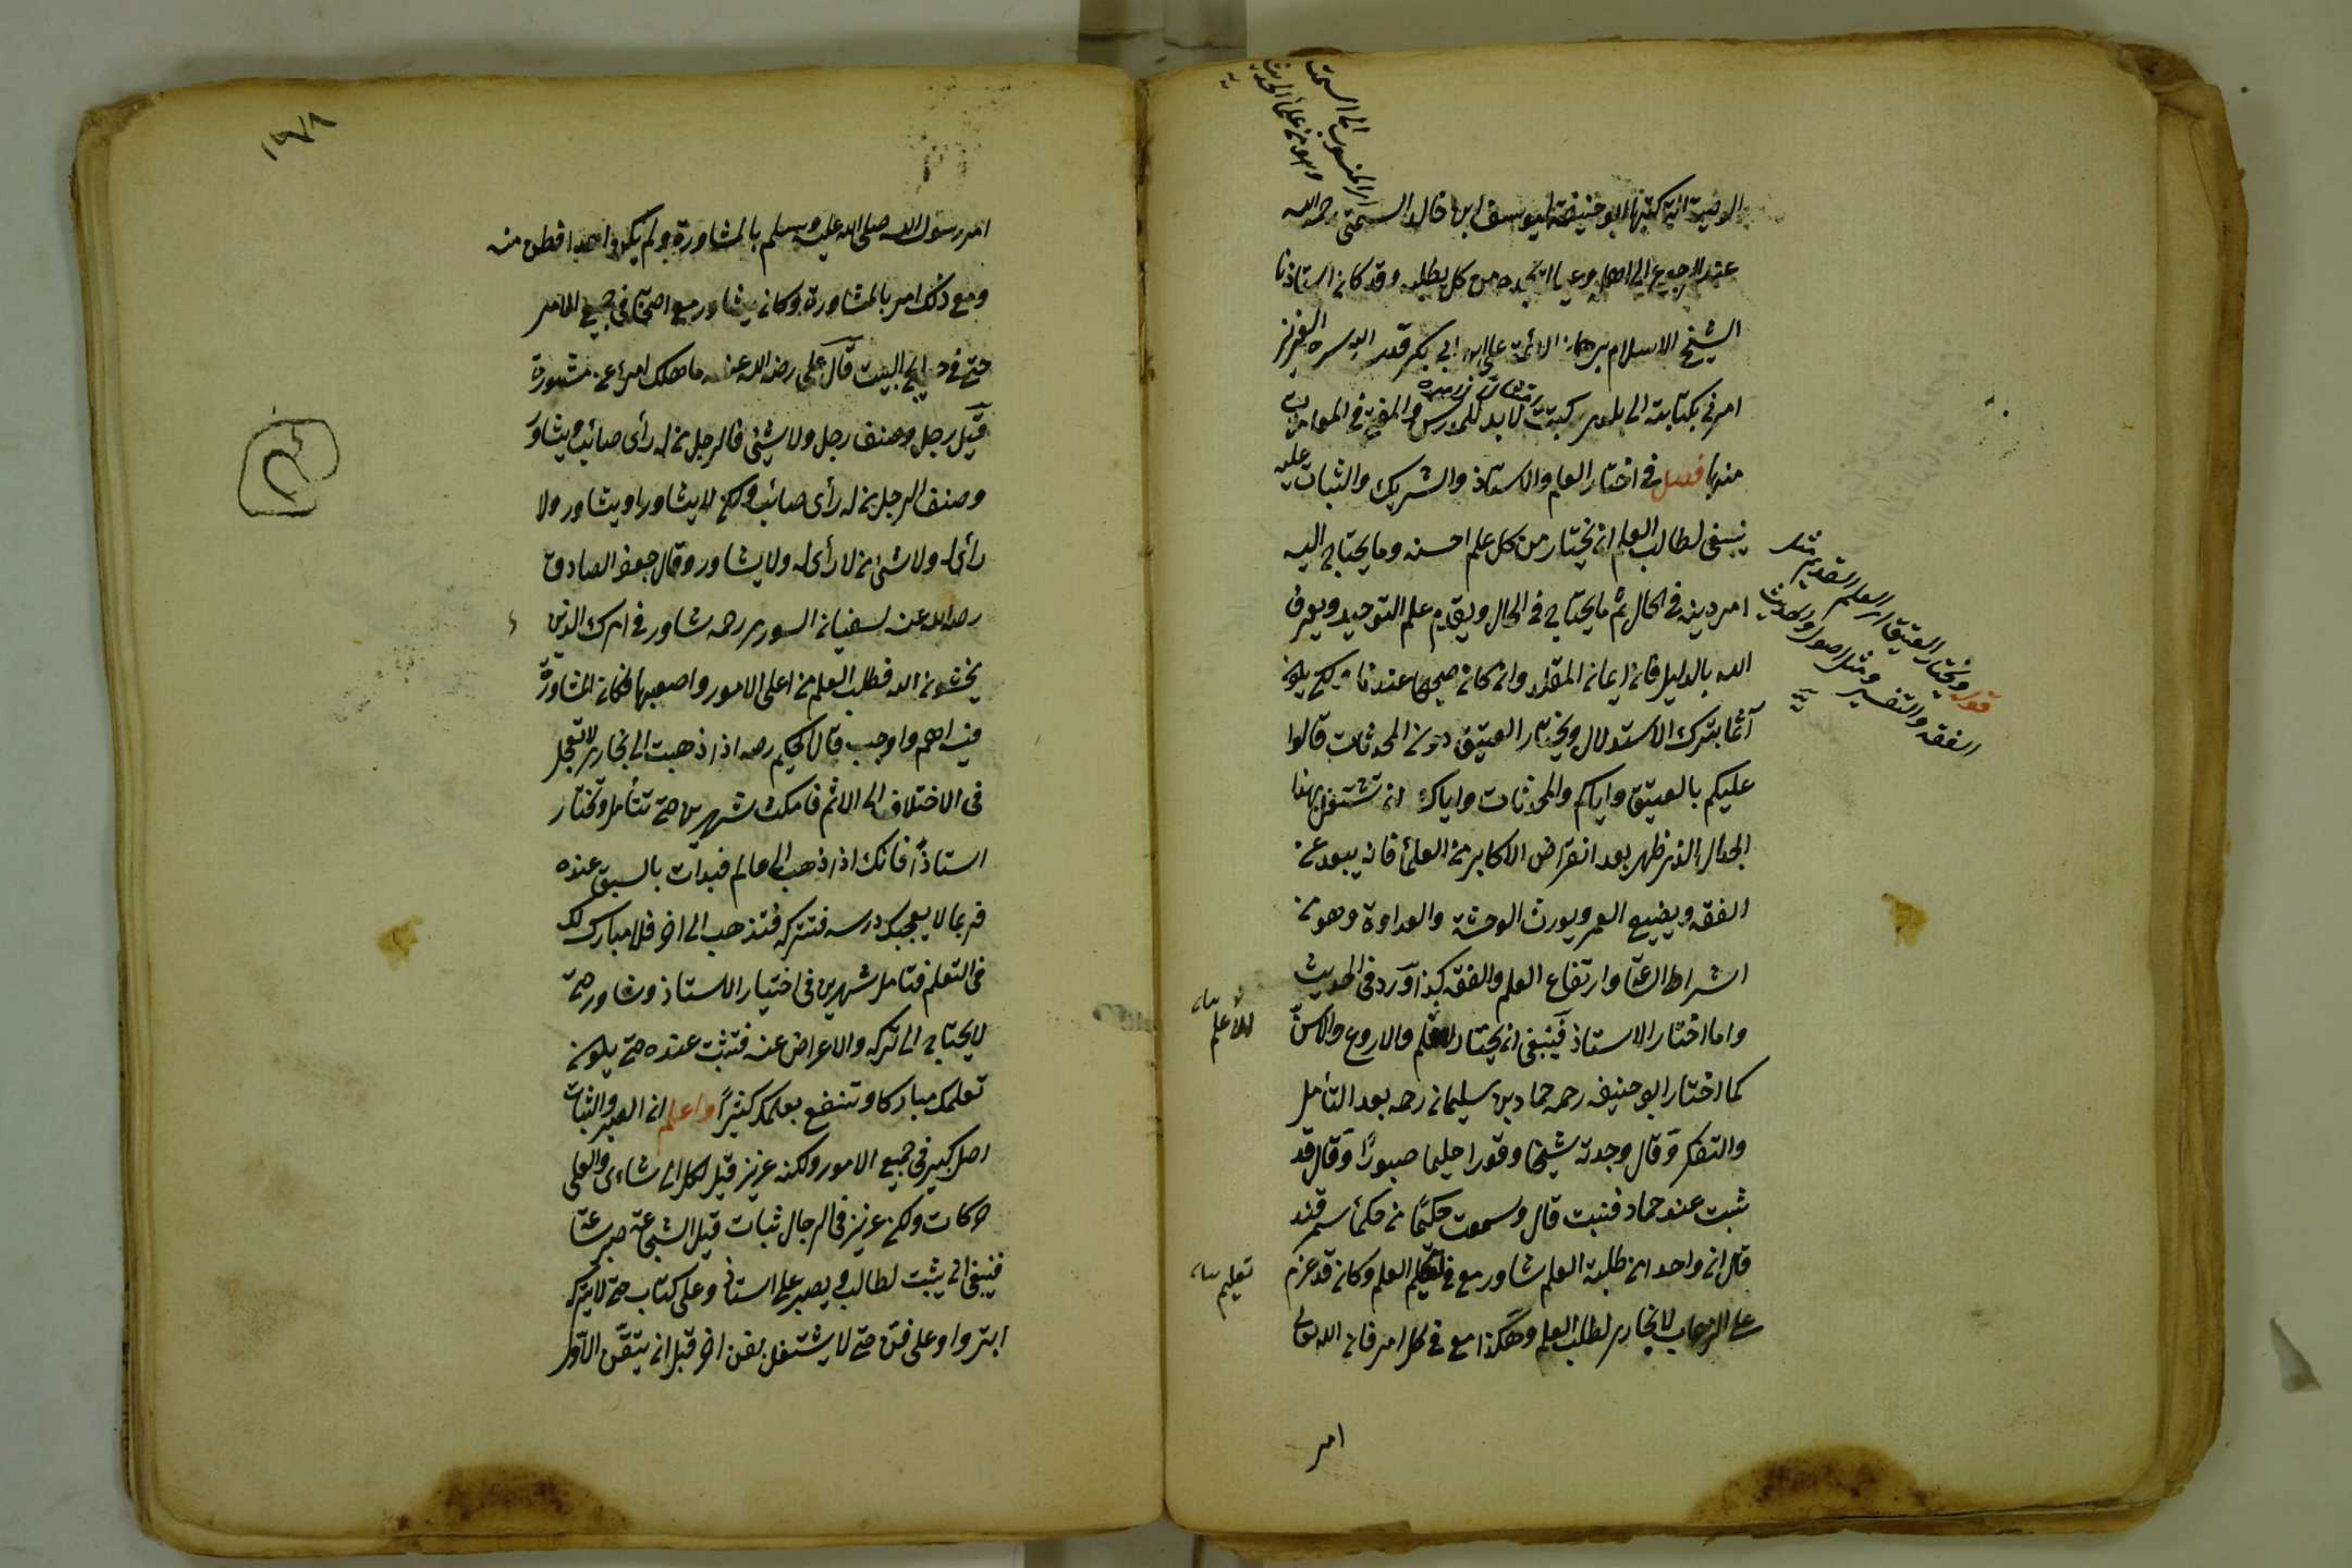 الوصية التي كتبها ابو حنيفة ليوسف ابن خالد السمتي رحمه الله
عند الرجوع الى اهله وعياله يجده من كل يطلبه وقد كان استاذنا
الشيخ الاسلام برهان الائمة على ابن ابى بكر قدس الله سره العزيز
امرنى بكتابته الى بلدى كتبت لابد للمدرس والمفتى فى المعاملات
منها فصل فى اختيار العلم والاستاذ والشريك والثبات عليه
ينبغى لطالب العلم ان يختار من كل علم احسنه وما يحتاج اليه
امر دينه فى الحال ثم ما يحتاج فى المال ويقدم علم التوحيد ويعرف
الله بالدليل فان ايمان المقلد وان كان صحيحا عندنا لكن يكون
آثما بترك الاستدلال ويختار العتيق دون المحدثات قالوا
عليكم بالعتيق واياكم والمحدثات واياك ان تشتغل بهذا
الجدال الذى ظهر بعد انقراض الاكابر من العلماء فانه يبعد عن
الفقه ويضيع العمر ويورث الوحشة والعداوة وهو من
اشراط الساعة وارتفاع العلم والفقه كذا ورد فى الحديث
واما اختيار الاستاذ فينبغى ان يختار الاعلم والاروع والاسن
كما اختار ابو حنيفه رحمه حماد بن سليمان رحمه بعد التأمل
والتفكر وقال وجدته شيخا وقورا حليما صبورًا وقال قد
ثبت عند حماد فنبت قال وسمعت حكيمًا من حكماء سمرقند
قال ان واحد ان طلبة العلم شاور مع فى تعليم العلم وكان قد عزم
على الذهاب لا بخارى لطلب العلم وهكذا مع فى كل امر فان الله تعالى
امر
اى المنسوب الى السمت
وهو من علماء الحديث
قوله ويختار العتيق اى العلم القديم مثل
الفقه والتفسير ومثل اصول والحديث
الأعلم
تعليم
امر رسول الله صلى الله عليه وسلم بالمشاورة ولم يكن احد افطن منه
ومع ذلك امر بالمشاورة وكان يشاور مع اصحابه فى جميع الامر
حتى فى حوايج البيت قال على رضى الله عنه ما هلك امرئ عن مشورة
قيل رجل ونصف رجل ولا شيئ فالرجل من له رأى صائب ويشاور
ونصف الرجل من له رأى صائب ولكن لا يشاور او يشاور ولا
رأى له ولا شئ من لا رأى له ولا يشاور وقال جعفر الصادق
رضى الله عنه لسفيان السورى رحمه شاور فى امرك الذين
يخشون الله فطلب العلم من اعلى الامور واصعبها فكان المشاورة
فيه اهم واوجب قال الحكيم رحمه اذا ذهبت الى بخارى لا تعجل
فى الاختلاف الى الائمة فامكث شهرين حتى تتأمل وتختار
استاذًا فانك اذا ذهبت الى عالم فبدات بالسبق عنده
فربما لا يعجبك درسه فتتركه فتذهب الى اخر فلا مبارك لك
فى التعلم فتامل شهرين فى اختيار الاستاذ وشاور حتى
لا يحتاج الى تركه والاعراض عنه فتثبت عنده حتى يكون
تعلمك مباركا وتنتفع بعلمك كثيرًا واعلم ان الصبر والثبات
اصل كبير فى جميع الامور ولكنه عزيز قيل لكل الى شاءى والعلى
حركات ولكن عزيز فى الرجال ثبات قيل الشجاعة صبر ساعة
فينبغى ان يثبت لطالب ويصبر على استاذ وعلى كتاب حتى لا يتركه
ابتر واو على فن حتى لا يشتغل بفن اخر قبل ان يتقن الاول